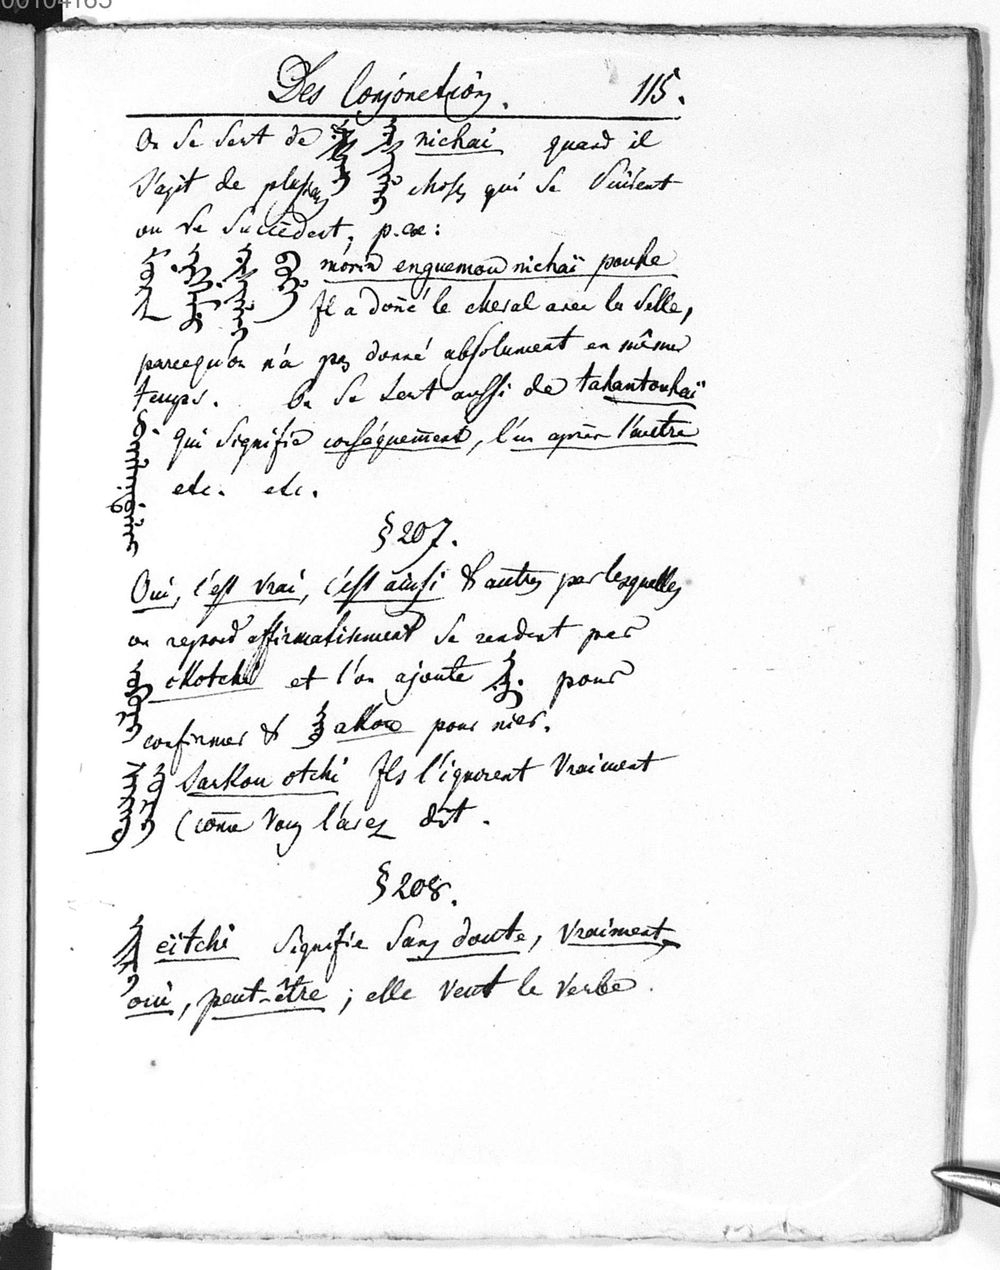 00104165
Des Conjonctions. 115.
On se sert de nichai quand il
s'agit de plusieurs choses qui se suivent
ou se succèdent, p. ex:
morin enguemou nichaï pouhe
Il a donné le cheval avec la selle,
parcequ'on n'a pas donné absolument en même
temps. On se sert aussi de tahantouhaï
qui signifie conséquem̄ent, l'un après l'autre
etc. etc.
§ 207.
Oui, c'est vrai, c'est ainsi & autres par lesquelles
on repond affirmativement se rendent par
okotchi et l'on ajoute pour
confirmer & akou pour nier.
Sarkou otchi Ils l'ignorent vraiment
(com̄e vous l'avez dit.
§ 208.
eïtchi signifie sans doute, vraiment,
oui, peut-être ; elle veut le verbe.